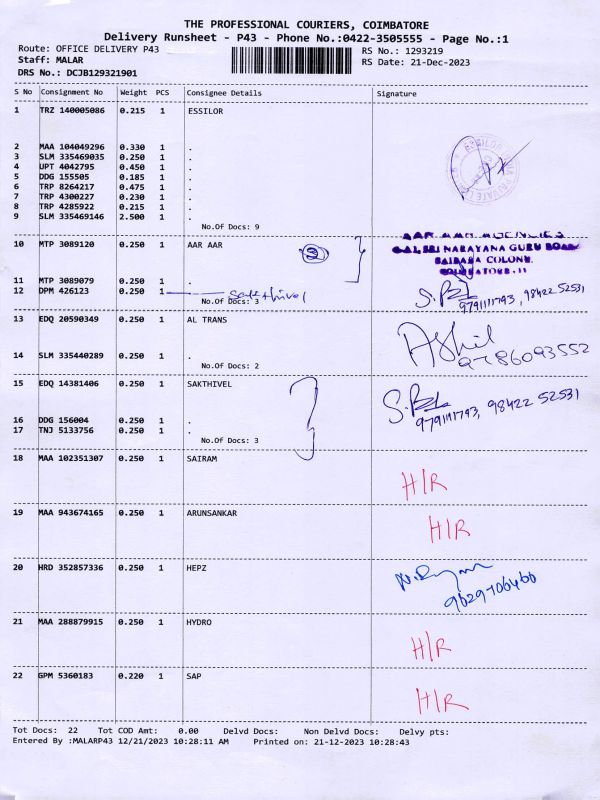 THE PROFESSIONAL COURIERS, COIMBATORE
Delivery Runsheet - P43 - Phone No.:0422-3505555 - Page No.:1
Route: OFFICE DELIVERY P43 RS No.: 1293219
Staff: MALAR RS Date: 21-Dec-2023
DRS No.: DCJB129321901
S No Consignment No Weight PCS Consignee Details Signature
1 TRZ 140005086 0.215 1 ESSILOR
2 MAA 104049296 0.330 1 .
3 SLM 335469035 0.250 1 .
4 UPT 4042795 0.450 1 .
5 DDG 155505 0.185 1 .
6 TRP 8264217 0.475 1 .
7 TRP 4300227 0.230 1 .
8 TRP 4285922 0.215 1 .
9 SLM 335469146 2.500 1 .
No.Of Docs: 9
AAR AAR AGENCIES
10 MTP 3089120 0.250 1 AAR AAR
SRI NARAYANA GURU ROAD
SAIBABA COLONY.
COIMBATORE-11
11 MTP 3089079 0.250 1 .
12 DPM 426123 0.250 1 Sakthivel
No.Of Docs: 3 9791111793, 98422 52531
13 EDQ 20590349 0.250 1 AL TRANS
9786093552
14 SLM 335440289 0.250 1 .
No.Of Docs: 2
15 EDQ 14381406 0.250 1 SAKTHIVEL
9791111793, 98422 52531
16 DDG 156004 0.250 1 .
17 TNJ 5133756 0.250 1 .
No.Of Docs: 3
18 MAA 102351307 0.250 1 SAIRAM
H/R
19 MAA 943674165 0.250 1 ARUNSANKAR
H/R
20 HRD 352857336 0.250 1 HEPZ
21 MAA 288879915 0.250 1 HYDRO
H/R
22 GPM 5360183 0.220 1 SAP
H/R
Tot Docs: 22 Tot COD Amt: 0.00 Delvd Docs: Non Delvd Docs: Delvy pts:
Entered By :MALARP43 12/21/2023 10:28:11 AM Printed on: 21-12-2023 10:28:43